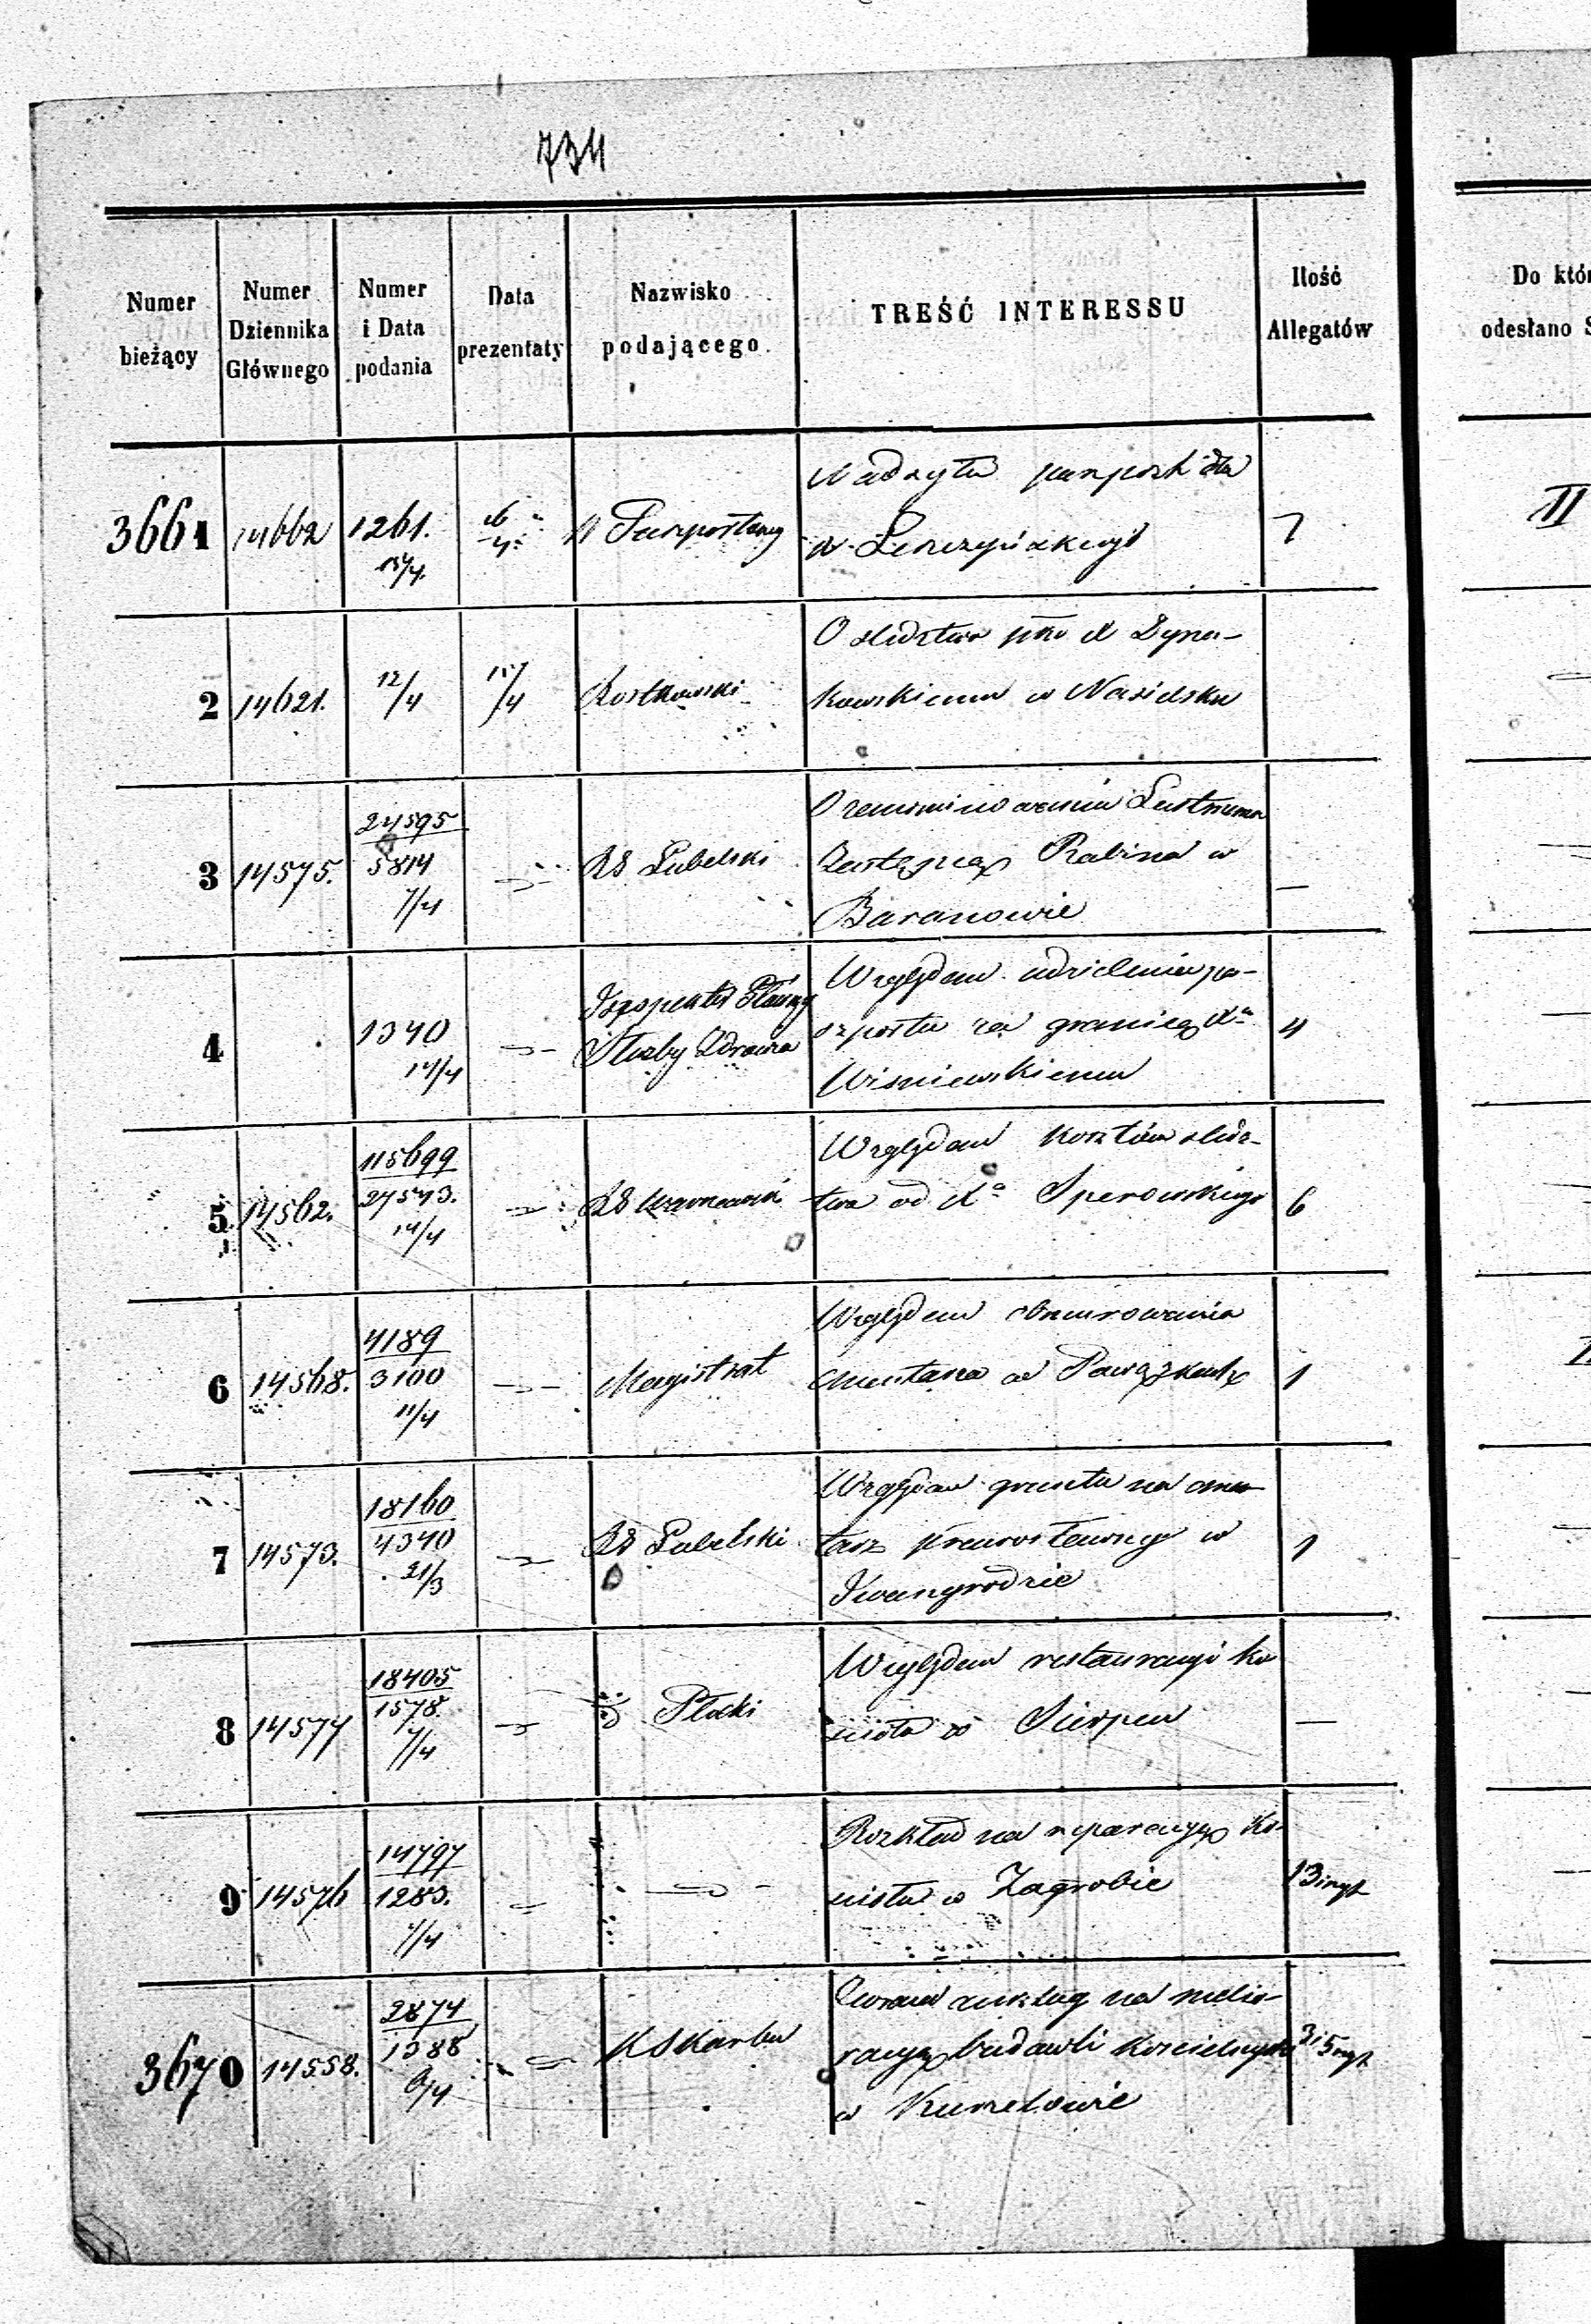 734
Numer bieżący
Numer Dziennika Głównego
Numer i Data podania
Data prezentaty
Nazwisko podającego.
TREŚĆ INTERESSU
Ilość Allegatów
Do któr
odesłano S
3661 14662 1261. 15/4. 16/4 Paszportowy Nadsyła paszport dla
II
2 14621. 12/4 15/4 Rostkowski O śledztwo pko X Dyna-
kowskiemu w Nasielsku
3 14575. 24595 5814 7/4 RG Lubelski
Zastępcą Rabina w
Baranowie —
4 1340 14/4 Inspektor Główny Służby Zdrowia Względem udzielenia pa-
szportu za granicę Xu 4
Wiśniewskiemu
5 14562. 115699 27543. 14/4 RG Warszawski Względem kosztów śledz-
twa od Xa Sperowskiego 6
6 14568. 4189 3100 11/4 Magistrat Względem obmurowania
cmentarza na Powązkach 1
7 14573. 18160 4340 21/3 RG Lubelski Względem gruntu na cmen
tarz prawosławny w 1
Iwangrodzie
8 14574 18405 1578. 7/4 Płocki Względem restauracyi ko
ścioła w Sierpcu —
9 14576 14797 1283. 7/4 Rozkład na reparacyę ko-
ścioła w Zagrobie 13
3670 14558. 2874 1388 9/4 K Skarbu Zwraca na melio-
racyę budowli kościelnych
w Kurzelowie